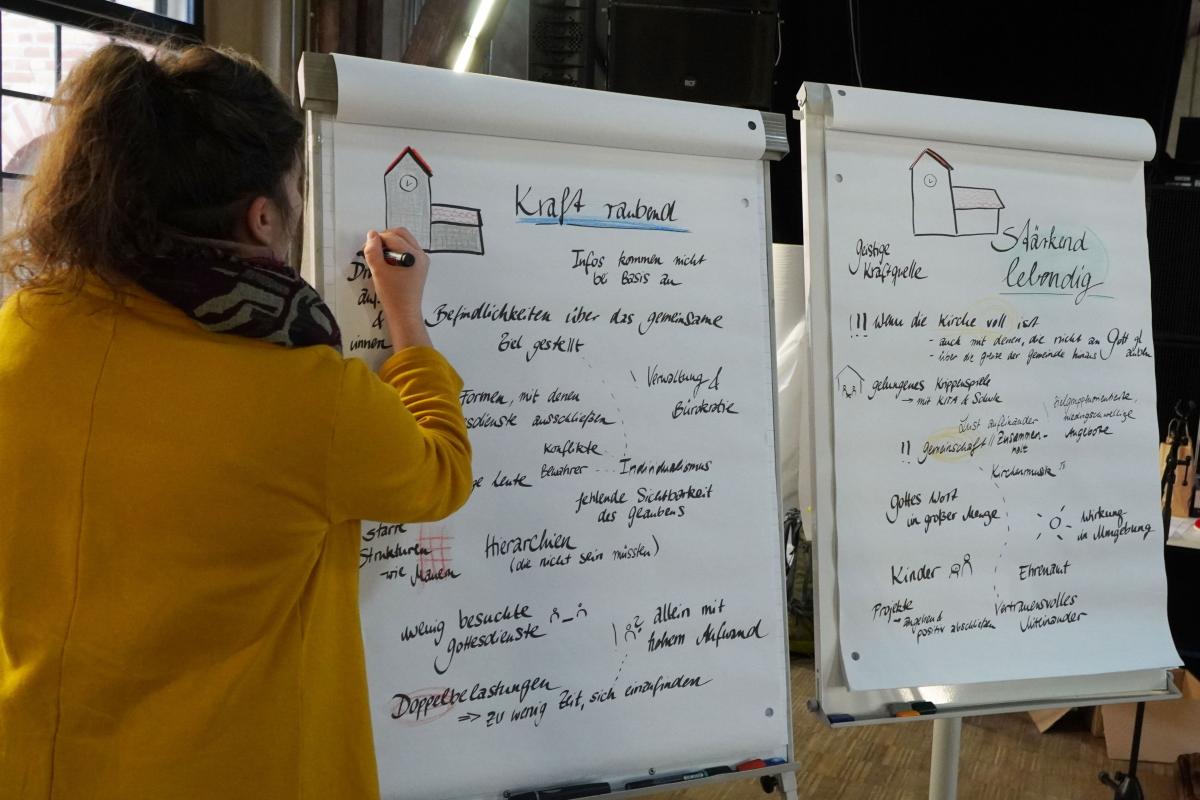 RCF
Kraft raubend
Infos kommen nicht
bei Basis an
Befindlichkeiten über das gemeinsame
Ziel gestellt
Verwaltung &
Bürokratie
Formen, mit denen
ausschließen
Konflikte
Leute Bewahrer
Individualismus
fehlende Sichtbarkeit
des glaubens
starre
Strukturen
wie Mauern
Hierarchien
(die nicht sein müssten)
wenig besuchte
Gottesdienste
allein mit
hohem Aufwand
Doppelbelastungen
=> zu wenig Zeit, sich einzufinden
Stärkend
lebendig
geistige
Kraftquelle
!!! wenn die Kirche voll ist
- auch mit denen, die nicht an Gott gl
auben
- über die grenze der gemeinde hinaus
gelungenes Krippenspiele
→ mit KITA & Schule
Lust aufeinander
zielgruppenorientierte,
niedrigschwellige
Angebote
!! gemeinschaft // Zusammen-
halt
Kirchenmusik
Gottes Wort
in großer Menge
Wirkung
in Umgebung
Kinder
Ehrenamt
Projekte
→ angehend
positiv abschließen
Vertrauensvolles
Miteinander